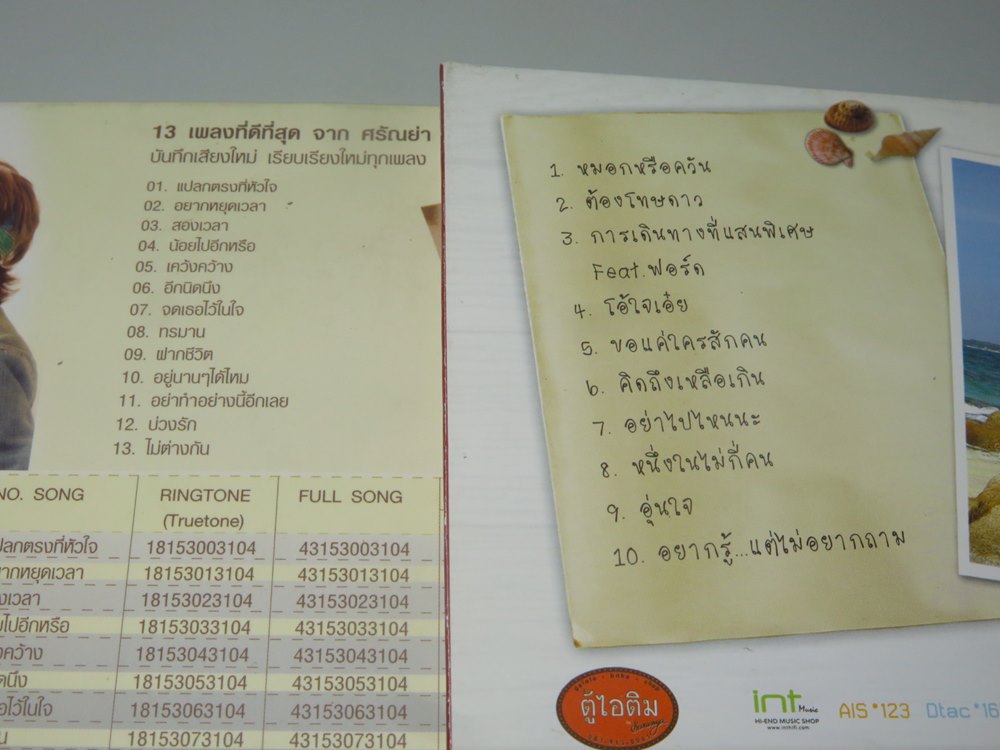 13 เพลงที่ดีที่สุด จาก ศรัณย่า
บันทึกเสียงใหม่ เรียบเรียงใหม่ทุกเพลง
01. แปลกตรงที่หัวใจ
02. อยากหยุดเวลา
03. สองเวลา
04. น้อยไปอีกหรือ
05. เคว้งคว้าง
06. อีกนิดนึง
07. จดเธอไว้ในใจ
08. ทรมาน
09. ฝากชีวิต
10. อยู่นานๆได้ไหม
11. อย่าทำอย่างนี้อีกเลย
12. บ่วงรัก
13. ไม่ต่างกัน
NO. SONG RINGTONE FULL SONG
(Truetone)
ปลกตรงที่หัวใจ 18153003104 43153003104
ยากหยุดเวลา 18153013104 43153013104
งเวลา 18153023104 43153023104
ยไปอีกหรือ 18153033104 43153033104
งคว้าง 18153043104 43153043104
ดนึง 18153053104 43153053104
อไว้ในใจ 18153063104 43153063104
น 18153073104 43153073104
1. หมอกหรือควัน
2. ต้องโทษดาว
3. การเดินทางที่แสนพิเศษ
Feat.ฟอร์ด
4. โอ้ใจเอ๋ย
5. ขอแค่ใครสักคน
6. คิดถึงเหลือเกิน
7. อย่าไปไหนนะ
8. หนึ่งในไม่กี่คน
9. อุ่นใจ
10. อยากรู้...แต่ไม่อยากถาม
ตู้ไอติม
by Saranya
int Music
HI-END MUSIC SHOP
www.inthifi.com
AIS *123 Dtac *16